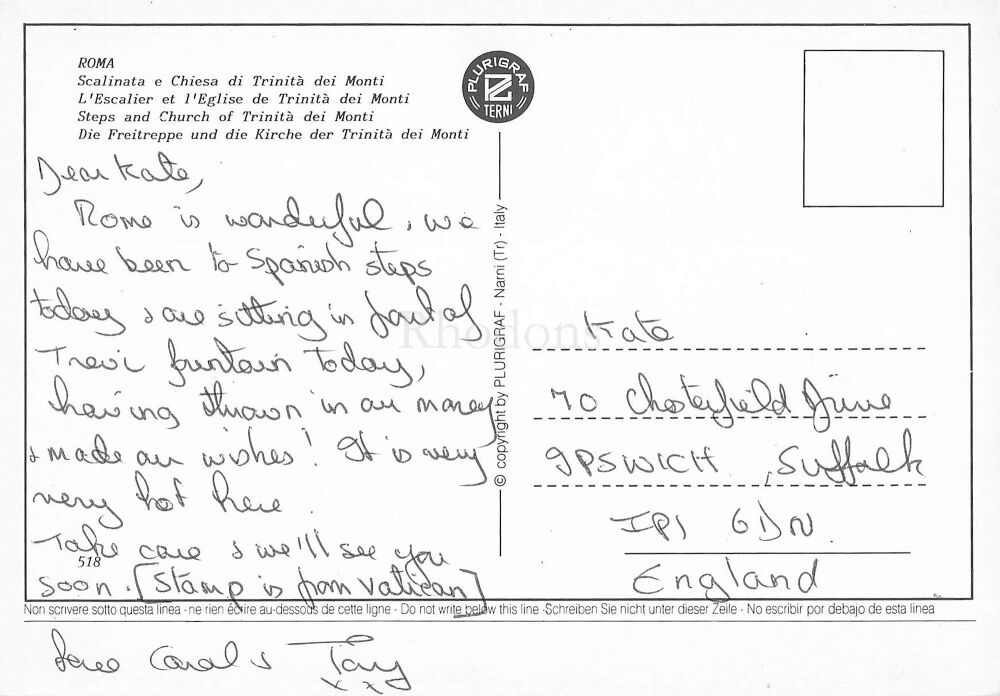 ROMA
Scalinata e Chiesa di Trinità dei Monti
L'Escalier et l'Eglise de Trinità dei Monti
Steps and Church of Trinità dei Monti
Die Freitreppe und die Kirche der Trinità dei Monti
PLURIGRAF
TERNI
Dear Kate,
Rome is wonderful, we
have been to Spanish steps
today & are sitting in front of
Trevi fountain today,
having thrown in our money
& made our wishes! It is very
very hot here.
Take care & we'll see you
518
soon. [Stamp is from Vatican]
© copyright by PLURIGRAF - Narni (Tr) - Italy
Rhodons
Kate
70 Chesterfield Drive
IPSWICH, Suffolk
IP1 6DN
England
Non scrivere sotto questa linea - ne rien écrire au-dessous de cette ligne - Do not write below this line - Schreiben Sie nicht unter dieser Zeile - No escribir por debajo de esta linea
Love Carol & Tony
x x x